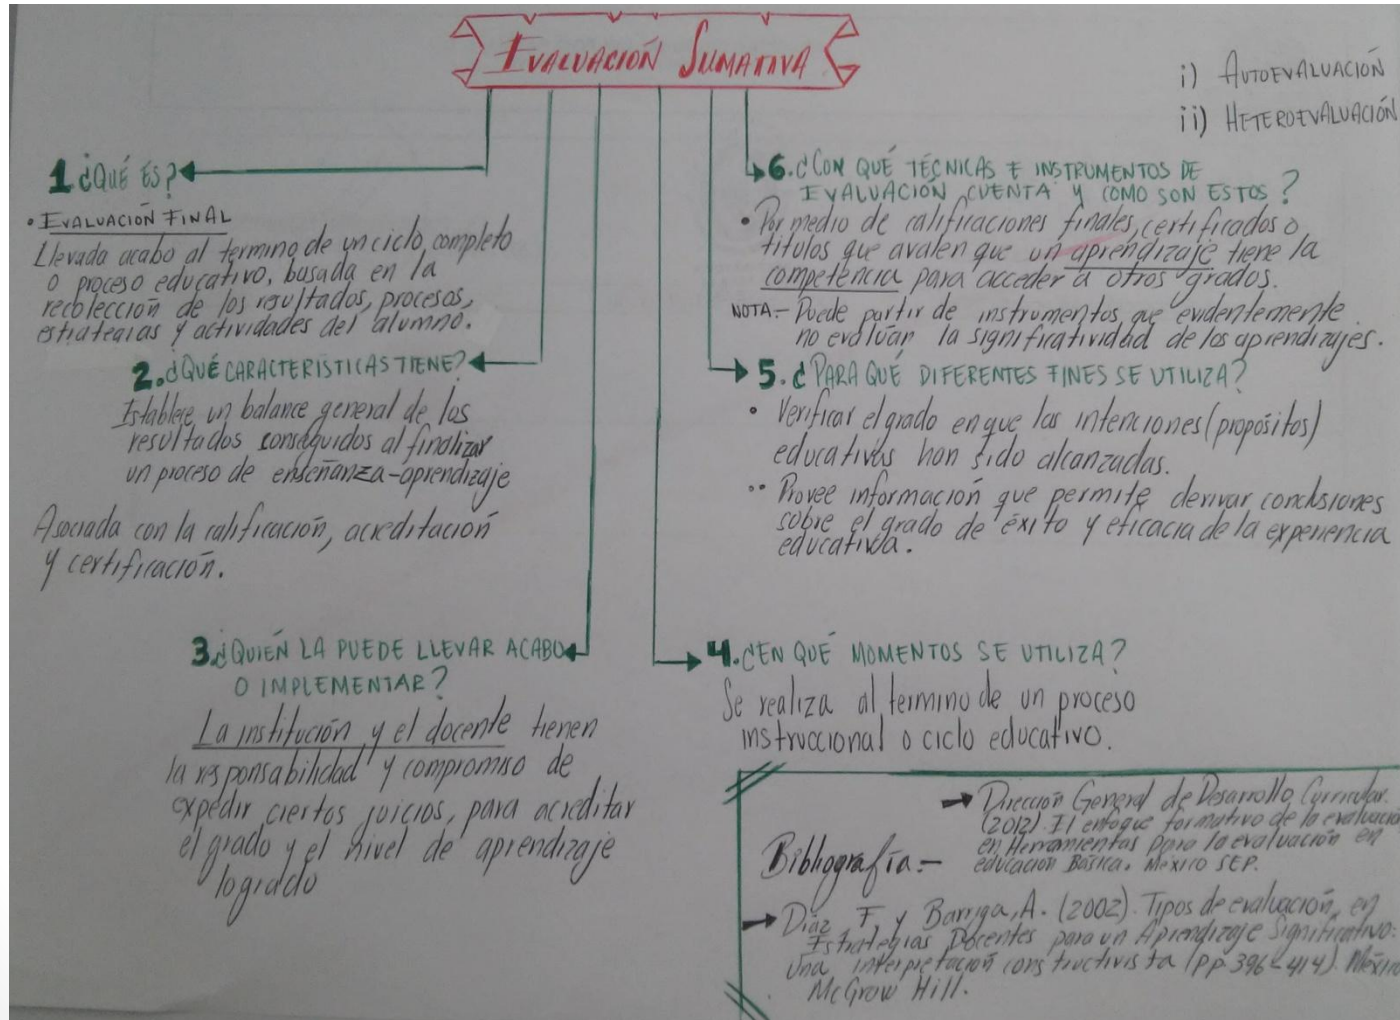 EVALUACIÓN SUMATIVA
i) AUTOEVALUACIÓN
ii) HETEROEVALUACIÓN
1. ¿QUÉ ES?
• EVALUACIÓN FINAL
Llevada acabo al termino de un ciclo completo
o proceso educativo, basada en la
recolección de los resultados, procesos,
estrategias y actividades del alumno.
2. ¿QUÉ CARACTERÍSTICAS TIENE?
Establece un balance general de los
resultados conseguidos al finalizar
un proceso de enseñanza-aprendizaje
Asociada con la calificación, acreditación
y certificación.
3. ¿QUIÉN LA PUEDE LLEVAR ACABO
O IMPLEMENTAR?
La institución y el docente tienen
la responsabilidad y compromiso de
expedir ciertos juicios, para acreditar
el grado y el nivel de aprendizaje
logrado
4. ¿EN QUÉ MOMENTOS SE UTILIZA?
Se realiza al termino de un proceso
instruccional o ciclo educativo.
5. ¿PARA QUÉ DIFERENTES FINES SE UTILIZA?
• Verificar el grado en que las intenciones (propósitos)
educativas han sido alcanzadas.
•• Provee información que permite derivar conclusiones
sobre el grado de éxito y eficacia de la experiencia
educativa.
6. ¿CON QUÉ TÉCNICAS E INSTRUMENTOS DE
EVALUACIÓN CUENTA Y COMO SON ESTOS?
• Por medio de calificaciones finales, certificados o
titulos que avalen que un aprendizaje tiene la
competencia para acceder a otros grados.
NOTA.- Puede partir de instrumentos que evidentemente
no evalúan la significatividad de los aprendizajes.
Bibliografía.-
→ Dirección General de Desarrollo Curricular.
(2012). El enfoque formativo de la evaluació
en Herramientas para la evaluación en
educación Básica. México SEP.
→ Díaz F, y Barriga, A. (2002). Tipos de evaluación, en
Estrategias Docentes para un Aprendizaje Significativo:
una interpretación constructivista (pp. 396-414). México
McGrow Hill.